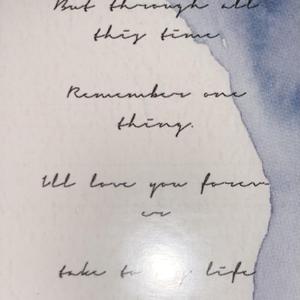 But through all
this time
Remember one
thing.
I'll love you forev
er
take to life